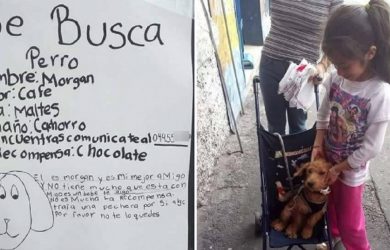 e Busca
Perro
mbre: Morgan
or: Cafe
a: Maltes
maño: Cachorro
encuentras comunicate al 04455
ecompensa: chocolate
El es morgan y es mi mejor amigo
NO tiene mucho que esta con
migo es un bebe
No es mucha la recompensa
traia una pechera por si
por favor no te lo quedes